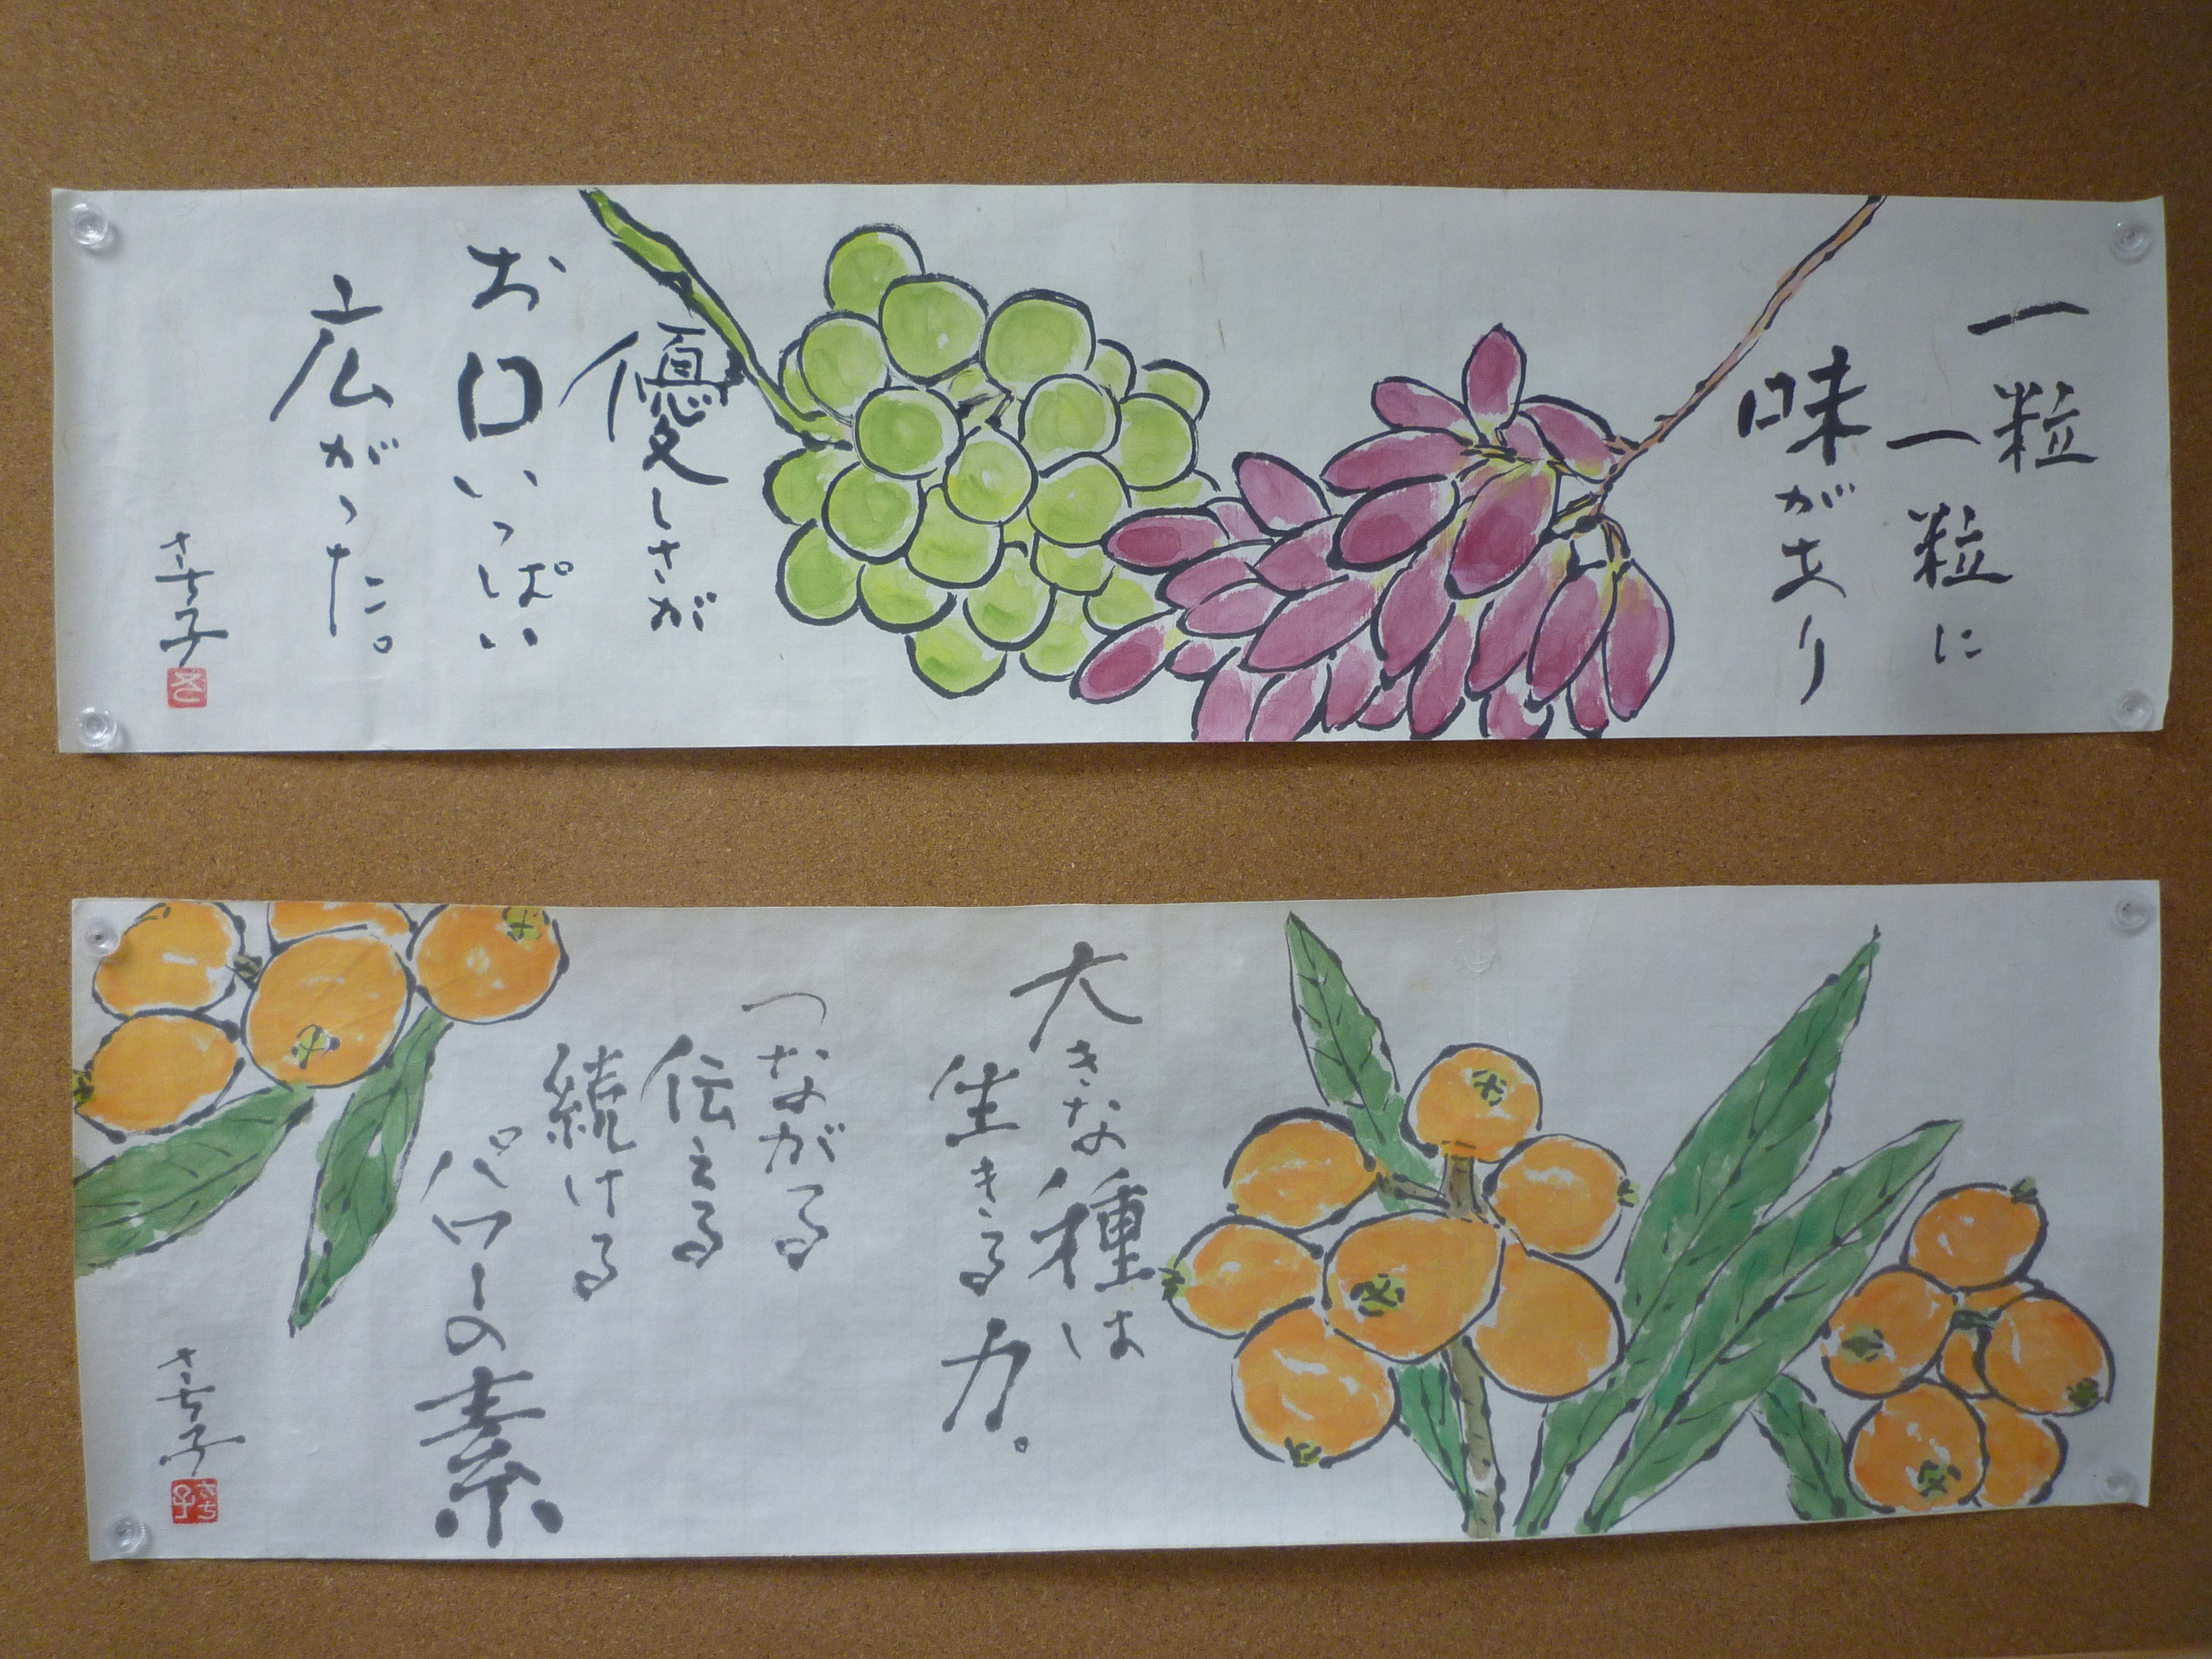 一粒
一粒に
味があり
優しさが
お口いっぱい
広がった。
さち子
大きな種は
生きる力。
つながる
伝える
続ける
パワーの素
さち子
さち子